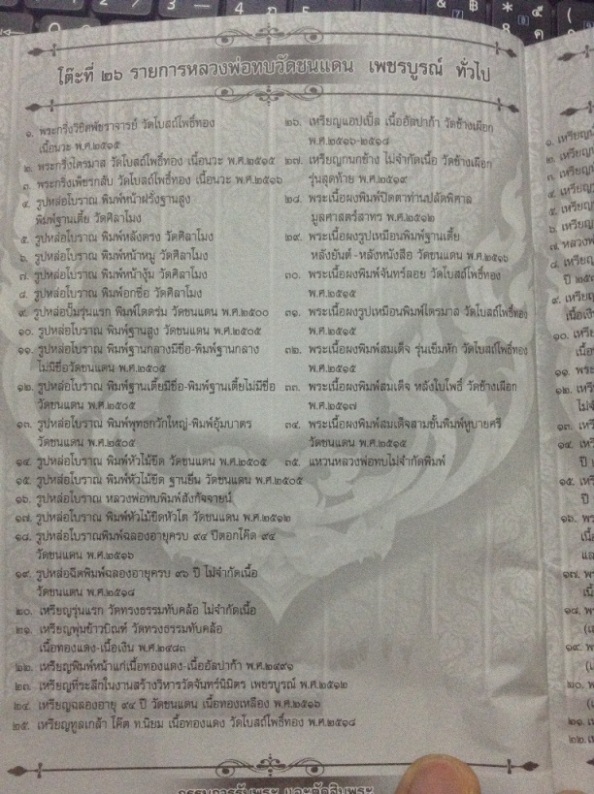 โต๊ะที่ ๒๖ รายการหลวงพ่อทบวัดชนแดน เพชรบูรณ์ ทั่วไป
๑. พระกริ่งวิชิตพัชราจารย์ วัดโบสถ์โพธิ์ทอง
เนื้อนวะ พ.ศ.๒๕๑๕
๒. พระกริ่งไตรมาส วัดโบสถ์โพธิ์ทอง เนื้อนวะ พ.ศ.๒๕๑๕
๓. พระกริ่งเพ็ชรกลับ วัดโบสถ์โพธิ์ทอง เนื้อนวะ พ.ศ.๒๕๑๖
๔. รูปหล่อโบราณ พิมพ์หน้าฝรั่งฐานสูง
พิมพ์ฐานเตี้ย วัดศิลาโมง
๕. รูปหล่อโบราณ พิมพ์หลังตรง วัดศิลาโมง
๖. รูปหล่อโบราณ พิมพ์หน้าหนู วัดศิลาโมง
๗. รูปหล่อโบราณ พิมพ์หน้างุ้ม วัดศิลาโมง
๘. รูปหล่อโบราณ พิมพ์อกชิด วัดศิลาโมง
๙. รูปหล่อปั๊มรุ่นแรก พิมพ์โตดร่ม วัดชนแดน พ.ศ.๒๕๐๐
๑๐. รูปหล่อโบราณ พิมพ์ฐานสูง วัดชนแดน พ.ศ.๒๕๐๕
๑๑. รูปหล่อโบราณ พิมพ์ฐานกลางมีชื่อ-พิมพ์ฐานกลาง
ไม่มีชื่อวัดชนแดน พ.ศ.๒๕๐๕
๑๒. รูปหล่อโบราณ พิมพ์ฐานเตี้ยมีชื่อ-พิมพ์ฐานเตี้ยไม่มีชื่อ
วัดชนแดน พ.ศ.๒๕๐๕
๑๓. รูปหล่อโบราณ พิมพ์พุทธกวักใหญ่-พิมพ์อุ้มบาตร
วัดชนแดน พ.ศ.๒๕๐๕
๑๔. รูปหล่อโบราณ พิมพ์หัวไม้ขีด วัดชนแดน พ.ศ.๒๕๐๕
๑๕. รูปหล่อโบราณ พิมพ์หัวไม้ขีด ฐานยื่น วัดชนแดน พ.ศ.๒๕๐๕
๑๖. รูปหล่อโบราณ หลวงพ่อทบพิมพ์สังกัจจายน์
๑๗. รูปหล่อโบราณ พิมพ์หัวไม้ขีดหัวโต วัดชนแดน พ.ศ.๒๕๑๒
๑๘. รูปหล่อโบราณพิมพ์ฉลองอายุครบ ๙๔ ปีตอกโค๊ด ๙๔
วัดชนแดน พ.ศ.๒๕๑๖
๑๙. รูปหล่อฉีดพิมพ์ฉลองอายุครบ ๙๖ ปี ไม่จำกัดเนื้อ
วัดชนแดน พ.ศ.๒๕๑๘
๒๐. เหรียญรุ่นแรก วัดทรงธรรมทับคล้อ ไม่จำกัดเนื้อ
๒๑. เหรียญพุ่มข้าวบิณฑ์ วัดทรงธรรมทับคล้อ
เนื้อทองแดง-เนื้อเงิน พ.ศ.๒๔๘๓
๒๒. เหรียญพิมพ์หน้าแก่เนื้อทองแดง-เนื้ออัลปาก้า พ.ศ.๒๔๙๖
๒๓. เหรียญที่ระลึกในงานสร้างวิหารวัดจันทร์นิมิตร เพชรบูรณ์ พ.ศ.๒๕๑๒
๒๔. เหรียญฉลองอายุ ๙๔ ปี วัดชนแดน เนื้อทองเหลือง พ.ศ.๒๕๑๖
๒๕. เหรียญทูลเกล้า โค๊ต ท.นิยม เนื้อทองแดง วัดโบสถ์โพธิ์ทอง พ.ศ.๒๕๑๘
๒๖. เหรียญแอปเปิ้ล เนื้ออัลปาก้า วัดช้างเผือก
พ.ศ.๒๕๑๖-๒๕๑๘
๒๗. เหรียญกนกข้าง ไม่จำกัดเนื้อ วัดช้างเผือก
รุ่นสุดท้าย พ.ศ.๒๕๑๙
๒๘. พระเนื้อผงพิมพ์ปิดตาท่านปลัดพิศาล
มูลศาสตร์สาทร พ.ศ.๒๕๑๒
๒๙. พระเนื้อผงรูปเหมือนพิมพ์ฐานเตี้ย
หลังยันต์-หลังหนังสือ วัดชนแดน พ.ศ.๒๕๑๖
๓๐. พระเนื้อผงพิมพ์จันทร์ลอย วัดโบสถ์โพธิ์ทอง
พ.ศ.๒๕๑๕
๓๑. พระเนื้อผงรูปเหมือนพิมพ์ไตรมาส วัดโบสถ์โพธิ์ทอง
พ.ศ.๒๕๑๕
๓๒. พระเนื้อผงพิมพ์สมเด็จ รุ่นเข็มหัก วัดโบสถ์โพธิ์ทอง
พ.ศ.๒๕๑๕
๓๓. พระเนื้อผงพิมพ์สมเด็จ หลังใบโพธิ์ วัดช้างเผือก
พ.ศ.๒๕๑๗
๓๔. พระเนื้อผงพิมพ์สมเด็จสามชั้นพิมพ์หูบายศรี
วัดชนแดน พ.ศ.๒๕๑๕
๓๕. แหวนหลวงพ่อทบไม่จำกัดพิมพ์
กรรมการรับพระ และตัดสินพระ